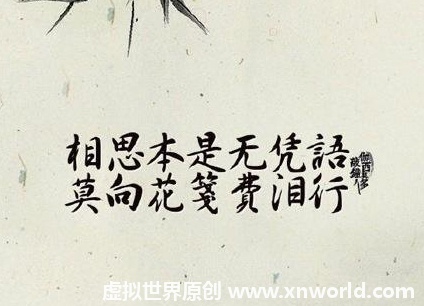 相思本是无凭語
莫向花笺費泪行
虚拟世界原创 www.xnworld.com